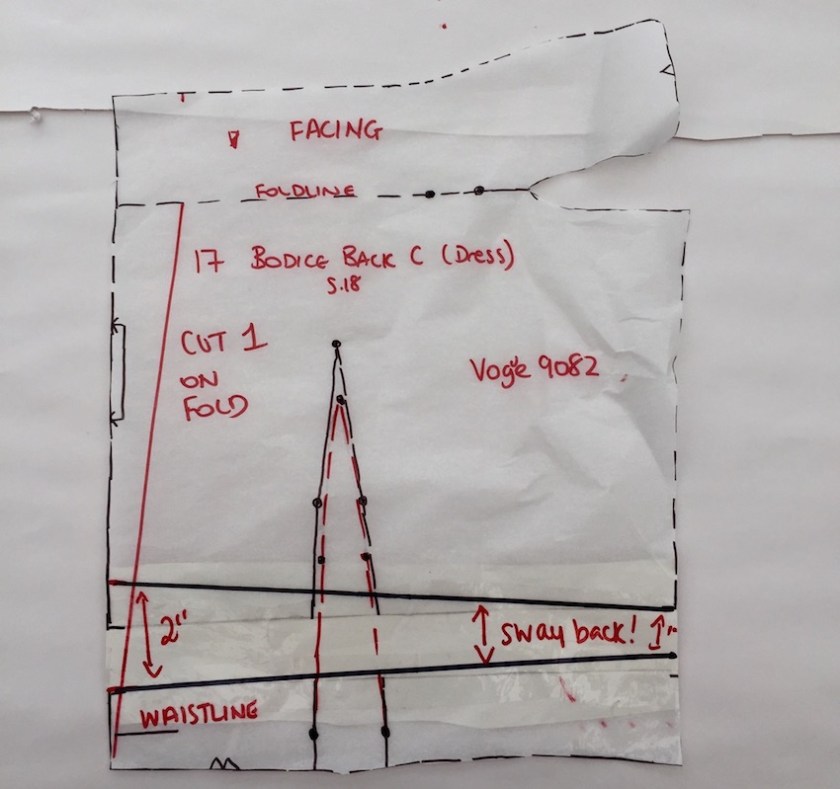 FACING
FOLDLINE
17 BODICE BACK C (Dress)
S.18
CUT 1
ON
FOLD
Vogue 9082
2"
sway back!
1"
WAISTLINE